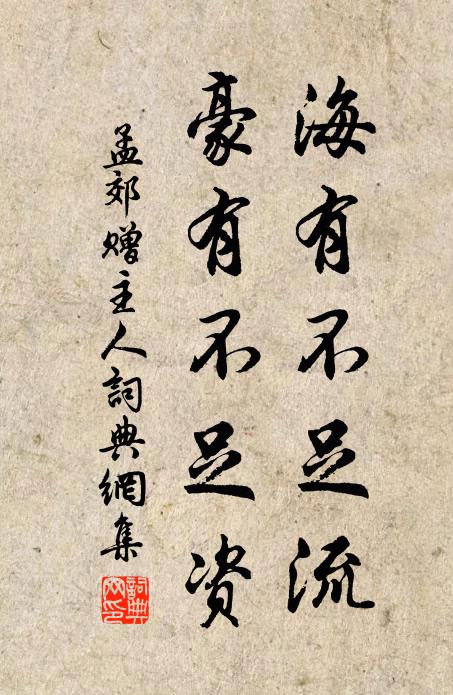 海有不足流
豪有不足资
孟郊赠主人詞典網集
詞典网印